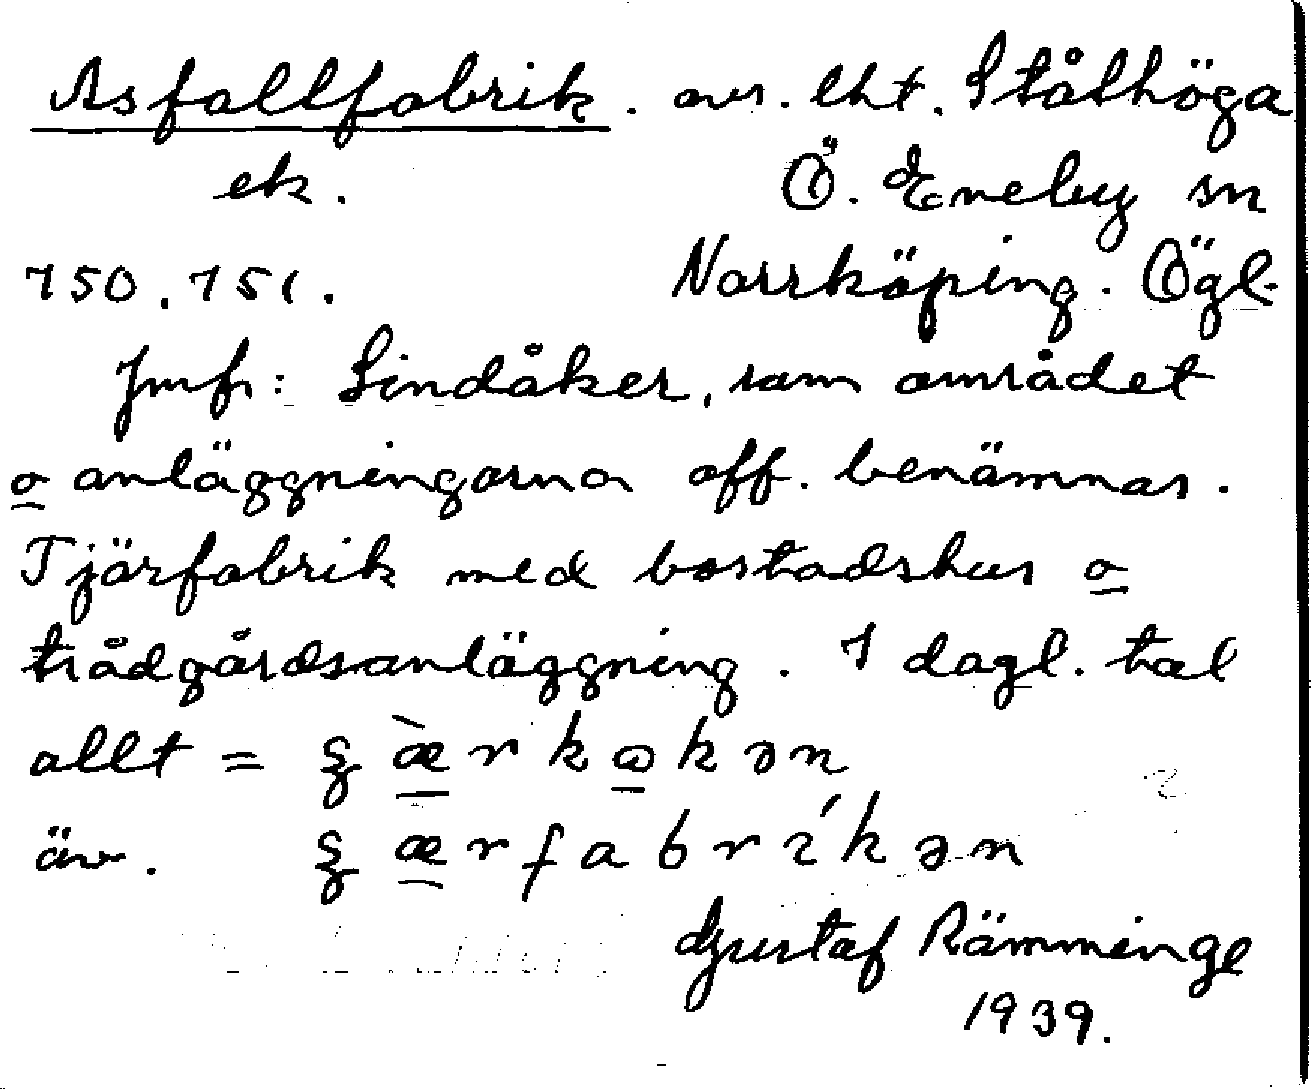 Asfallfabrik. avs. lht. Stålhöga
ek. Ö. Eneby sn
750. 751. Norrköping. Ögl.
Jmfr: Lindåker, som området
o anläggningarna off. benämnas.
Tjärfabrik med bostadshus o
trädgårdsanläggning. I dagl. tal
allt = ʂæ̀rkɷkən
äv. ʂærfabríkən
Gustaf Rämminge
1939.